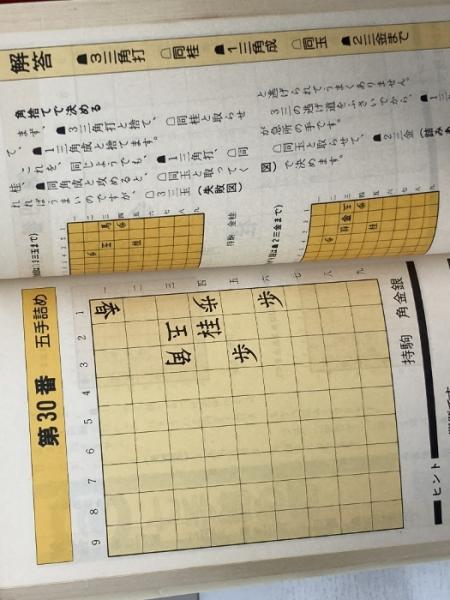 解答
☗3三角打
☖同桂
☗1三角成
☖同玉
☗2三金まで
角捨てで決める
まず、☗3三角打と捨て、
☖同桂と取らせ
て、☗1三角成と捨てます。
これを、同じようでも、☗1三角打、☖同
桂、☗同角成と攻めると、☖同玉と取ってく
ればうまいのですが、☖3三玉(失敗図)
と逃げられてうまくありません。
3三の逃げ道をふさいでから、
が急所の手です。
☖同玉と取らせて、☗2三金
で決めます。
持駒 金桂
第30番 五手詰め
9 8 7 6 5 4 3 2 1
一
二
三
四
五
六
七
八
九
香
角 王
桂 歩
歩
歩
持駒 角金銀
ヒント